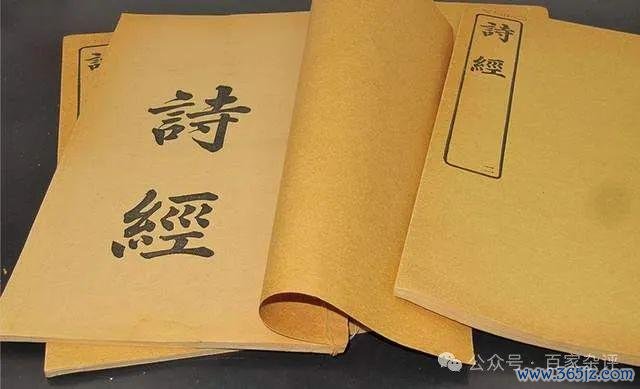 詩
經
詩
經
二
公众号·百家杂评
www.365jz.com